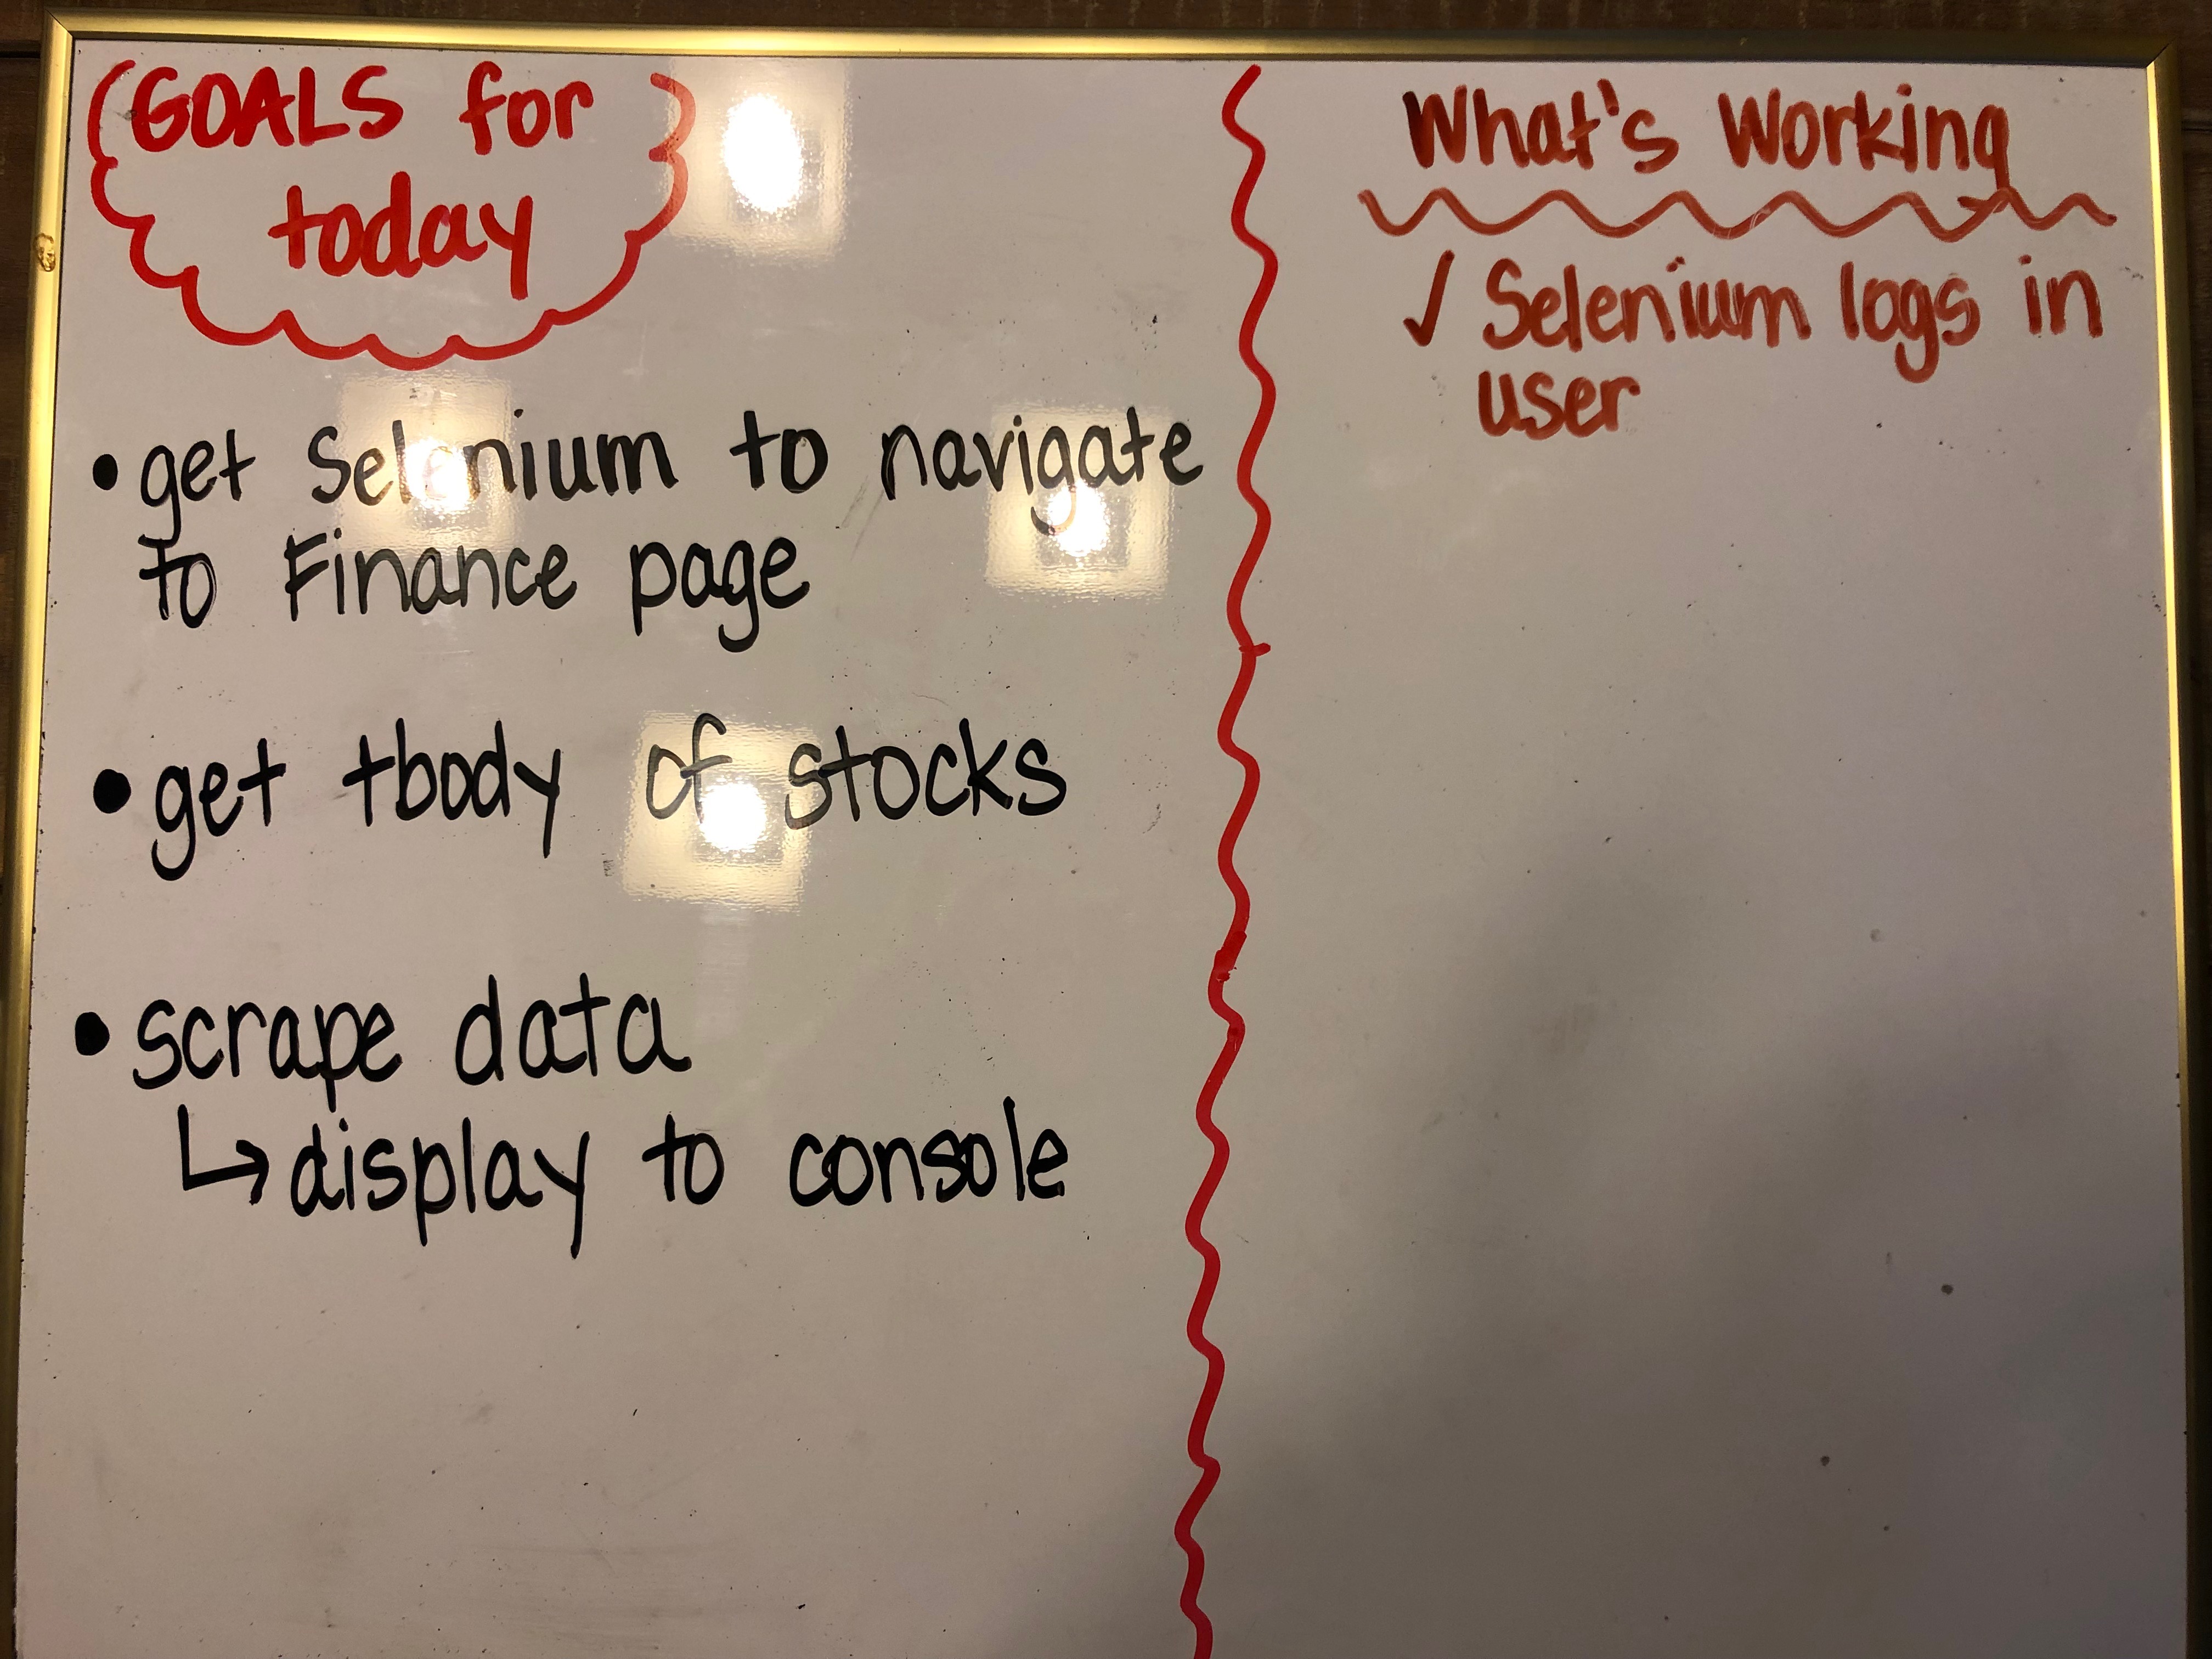 GOALS for
today
• get selenium to navigate
to Finance page
• get tbody of stocks
• scrape data
↳ display to console
What's Working
✓ Selenium logs in
user